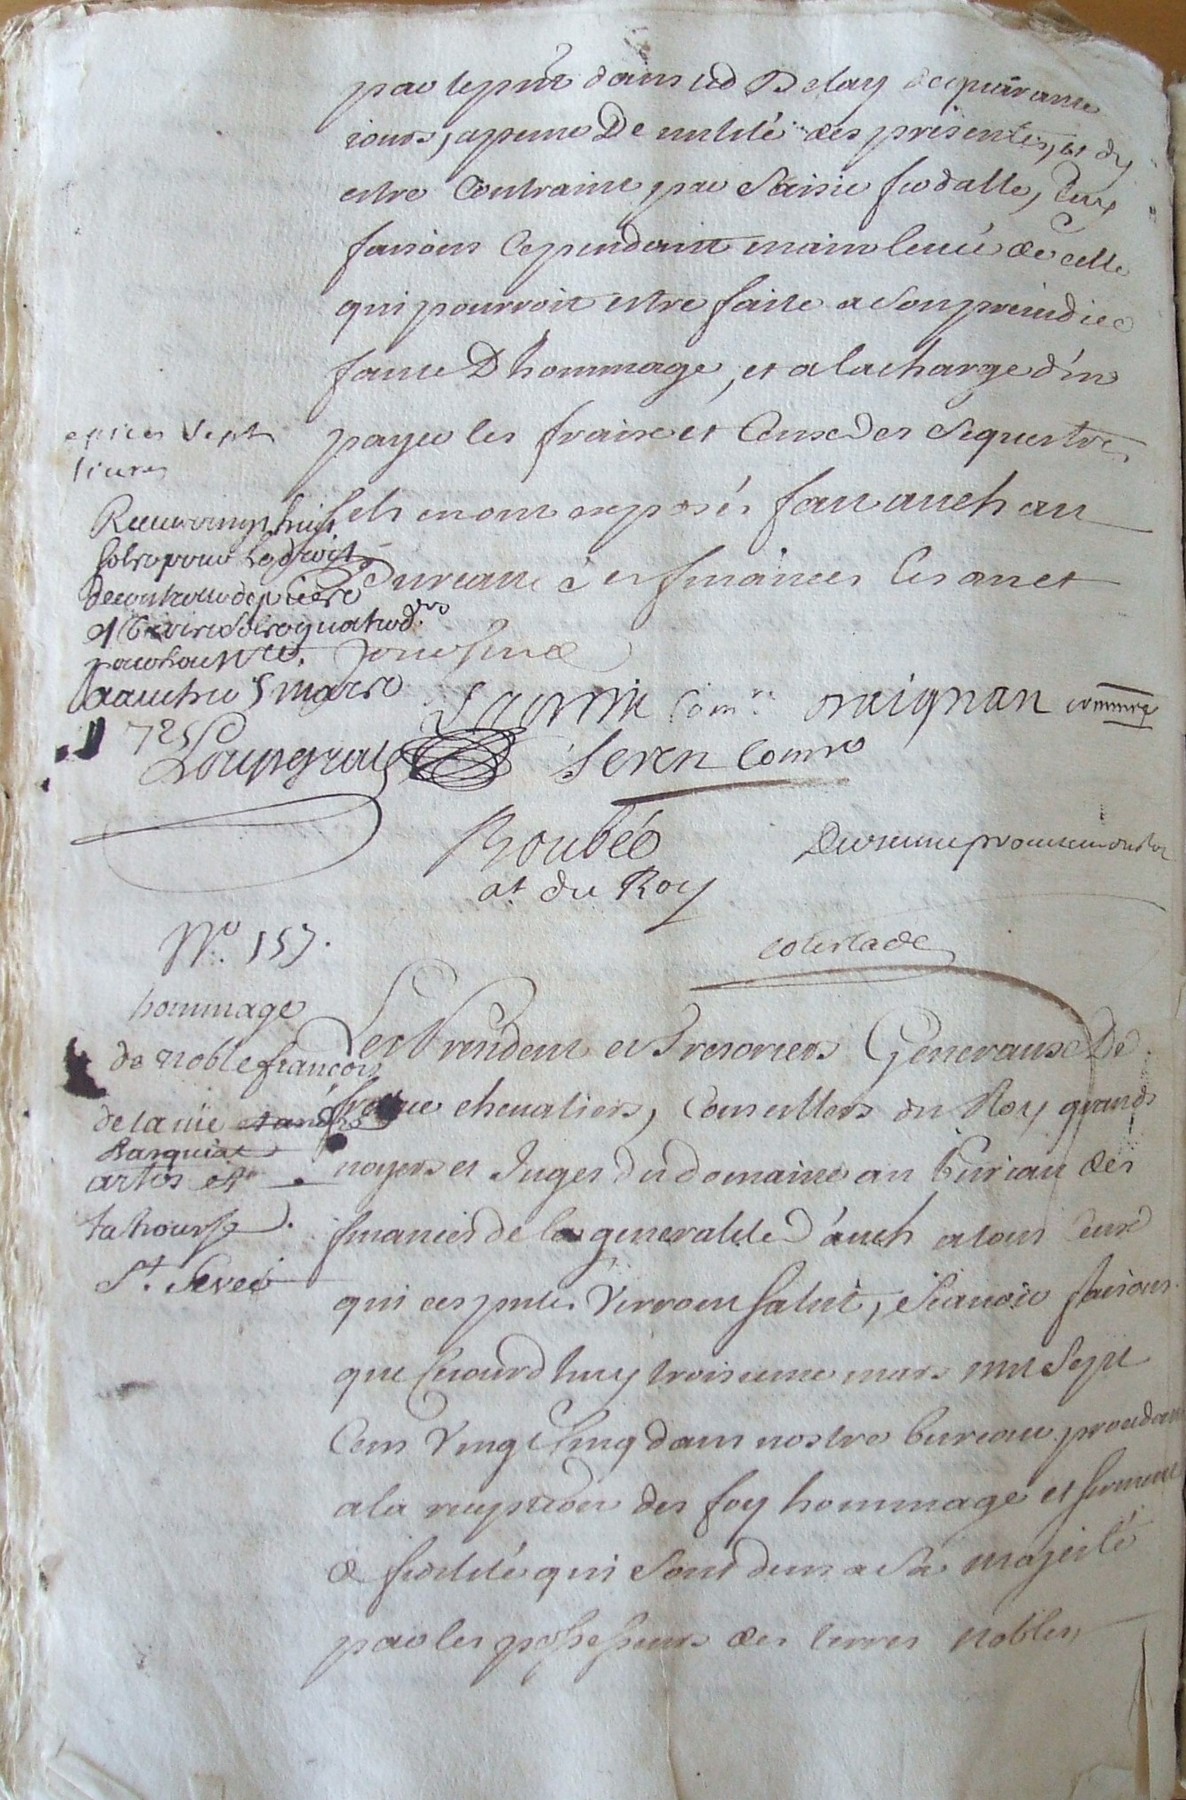 par le pnt dans led Delay de quarante
jours, a peine De nullité des presentes, et dy
estre Contraint par Saisie feodalle, Luy
faisions Cependant main levée de celle
qui pourroit estre faite a Son prejudice
faute D hommage, et a la charge d'en
payer les fraix et Ceux des Sequestres
Sils en ont exposés fait auch au
Bureau des finances les an et
jour Susd
epices Sept
livres
Receu vingt huit
sols pour le droit
de controlle
aauch ce 5 mars
725
Loupgrat
Comre oreignan comre
Seren Comre
Roubée
at. du Roy
procureur du Roy
colestade
No. 157.
hommage
de noble francois
de la
Barquiat
artos et
tahourse.
St. Sever
Les President et Tresoriers Generaux De
france chevaliers, Conseillers du Roy grands
voyers et Juges du domaine au bureau des
finances de la generalité d'auch a tous Ceux
qui ces pntes Verront Salut, Scavoir faisons
que Cejourd huy troisieme mars mil Sept
Cens Vingt Cinq dans nostre bureau procedant
a la reception des foy hommage et serment
de fidelité qui Sont deus a Sa majesté
par les possesseurs des terres nobles,